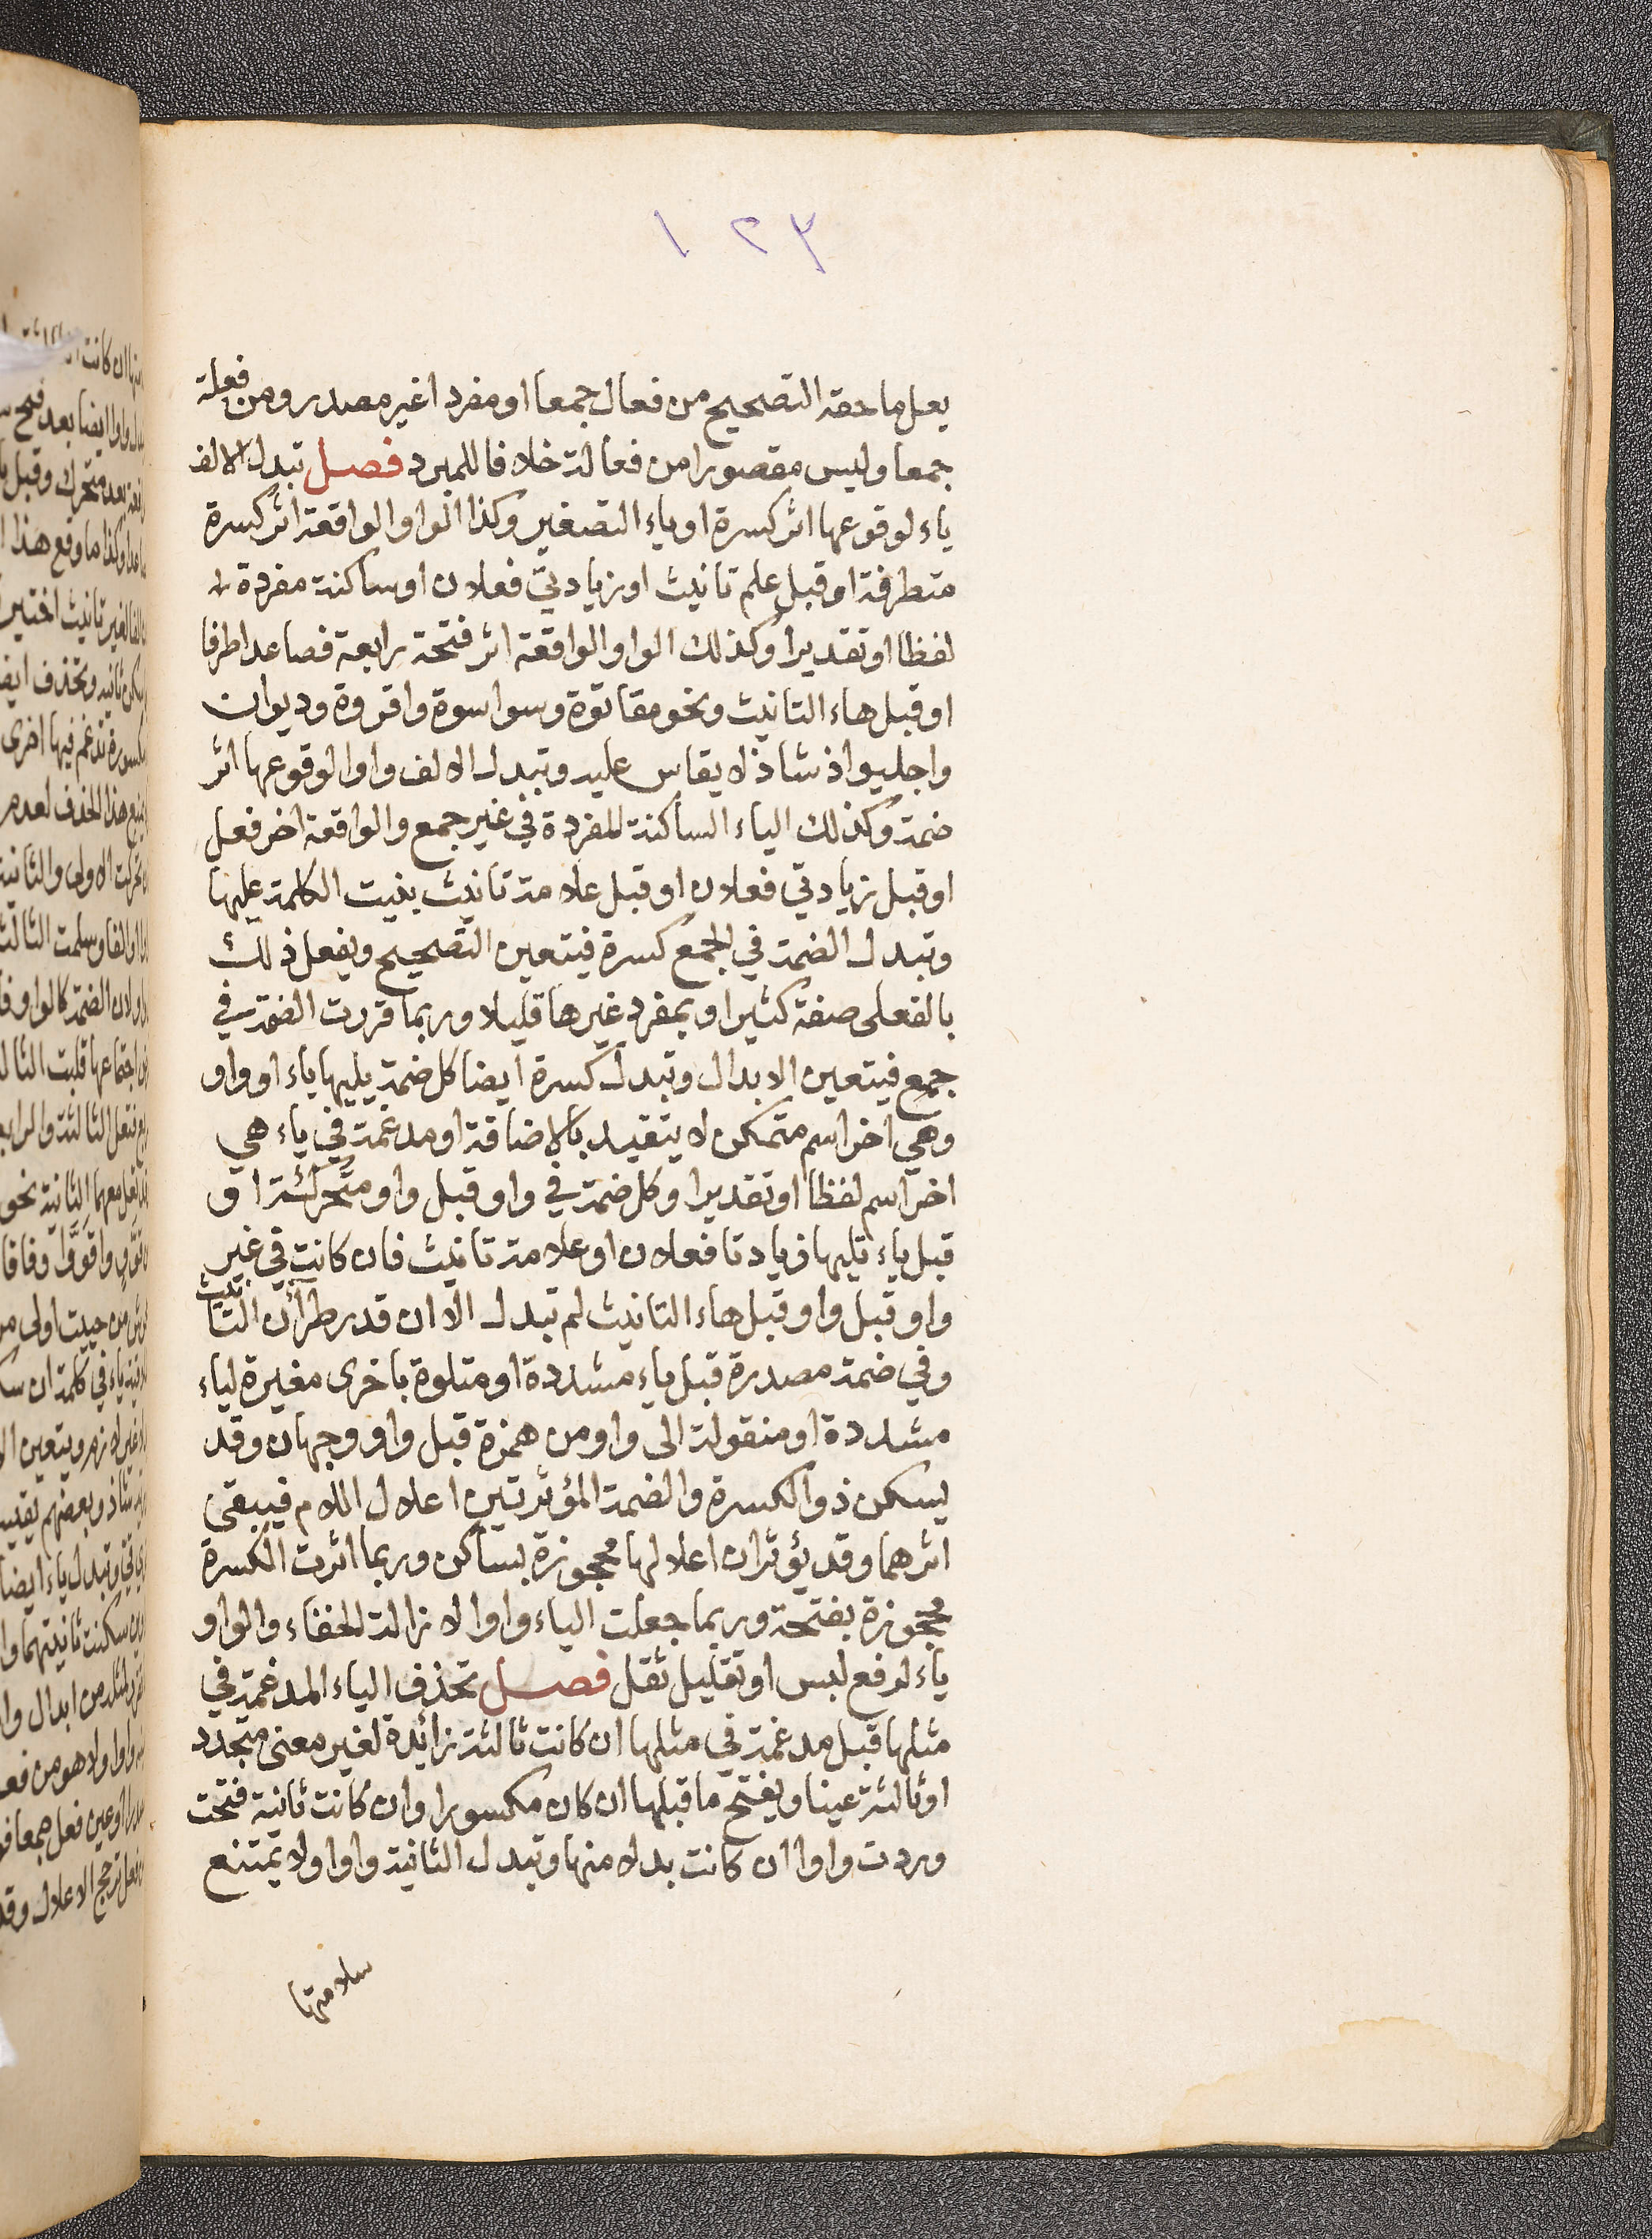 ١٢٣
يعل ما حقه التصحيح من فعال جمعا او مفردا غير مصدر ومن فعلة
جمعا وليس مقصورا من فعالة خلافا للمبرد فصل تبدل الالف
ياء لوقوعها اثر كسرة او ياء التصغير وكذا الواو الواقعة اثر كسرة
متطرفة او قبل علم تانيث او زيادتي فعلان او ساكنة مفردة
لفظا او تقديرا وكذلك الواو الواقعة اثر فتحة رابعة فصاعدا طرفا
او قبل هاء التانيث ونحو مقاتوة وسواسوة واقروة وديوان
واجليواذ شاذ لا يقاس عليه وتبدل الالف واوا لوقوعها اثر
ضمة وكذلك الياء الساكنة المفردة في غير جمع والواقعة اخر فعل
او قبل زيادتي فعلان او قبل علامة تانيث بنيت الكلمة عليها
وتبدل الضمة في الجمع كسرة فيتعين التصحيح ويفعل ذلك
بالفعلى صفة كثيرا وبمفرد غيرها قليلا وربما قررت الضمة في
جمع فيتعين الابدال وتبدل كسرة ايضا كل ضمة يليها ياء او واو
وهي اخر اسم متمكن لا يتقيد بالاضافة او مدغمة في ياء هي
اخر اسم لفظا او تقديرا وكل ضمة في واو قبل واو متحركة او
قبل ياء تليها زيادتا فعلان او علامة تانيث فان كانت في غير
واو قبل واو قبل هاء التانيث لم تبدل الا ان قدر طرآن التانيث
وفي ضمة مصدرة قبل ياء مشددة او متلوة باخرى مغيرة لياء
مشددة او منقولة الى واو من همزة قبل واو وجهان وقد
يسكن ذو الكسرة والضمة المؤثرتين اعلال اللام فيبقى
اثرهما وقد يؤثران اعلالها محجوزة بساكن وربما اثرت الكسرة
محجوزة بفتحة وربما جعلت الياء واوا لازالة الخفاء والواو
ياء لرفع لبس او تقليل ثقل فصل تحذف الياء المدغمة في
مثلها قبل مدغمة في مثلها ان كانت ثالثة زائدة لغير معنى متجدد
او ثالثة عينا ويفتح ما قبلها ان كان مكسورا وان كانت ثانية فتحت
وردت واوا ان كانت بدلا منها وتبدل الثانية واوا ولا تمتنع
سلامتها